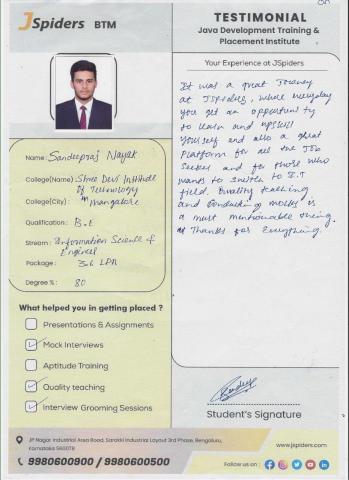 JSpiders BTM
TESTIMONIAL
Java Development Training &
Placement Institute
Your Experience at JSpiders
It was a great Journey
at JSpiders, where everyday
you get an opportunity
to learn and upskill
yourself and also a great
platform for all the Job
Seeker and for those who
wants to switch to I.T
field. Quality teaching
and Conducting mocks is
a must mentionable thing.
Thanks for Everything.
Name : Sandeepraj Nayak
College(Name) : Shree Devi Institute
of Technology
College(City) : Mangalore
Qualification : B.E
Stream : Information Science &
Package : 3.6 LPA
Degree % : 80
What helped you in getting placed ?
Presentations & Assignments
Mock Interviews
Aptitude Training
Quality teaching
Interview Grooming Sessions
Student's Signature
JP Nagar Industrial Area Road, Sarakki Industrial Layout 3rd Phase, Bengaluru,
Karnataka 560078
9980600900 / 9980600500
www.jspiders.com
Follow us on :